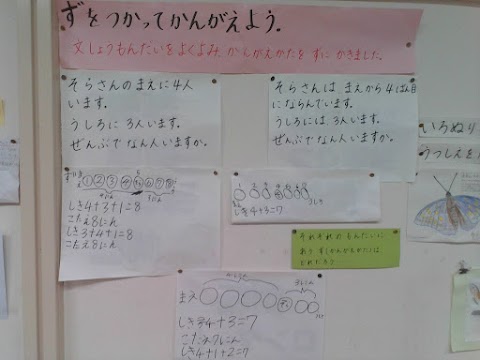 ずをつかってかんがえよう。
文しょうもんだいをよくよみ、かんがえかたを ずに かきました。
そらさんのまえに4人
います。
うしろに 3人います。
ぜんぶでなん人いますか。
そらさんは、まえから4ばん目
にならんでいます。
うしろには、3人います。
ぜんぶでなん人いますか。
いろぬり
うつしえを
①②③
しき4+3+1=8
こたえ8にん
しき3+4+1=8
こたえ8にん
しき4+3=7
それぞれの もんだいに
あう ず(かんがえかた)は、
どれだろう
まえ
しき4+3=7
こたえ7にん
しき4+1+2=7